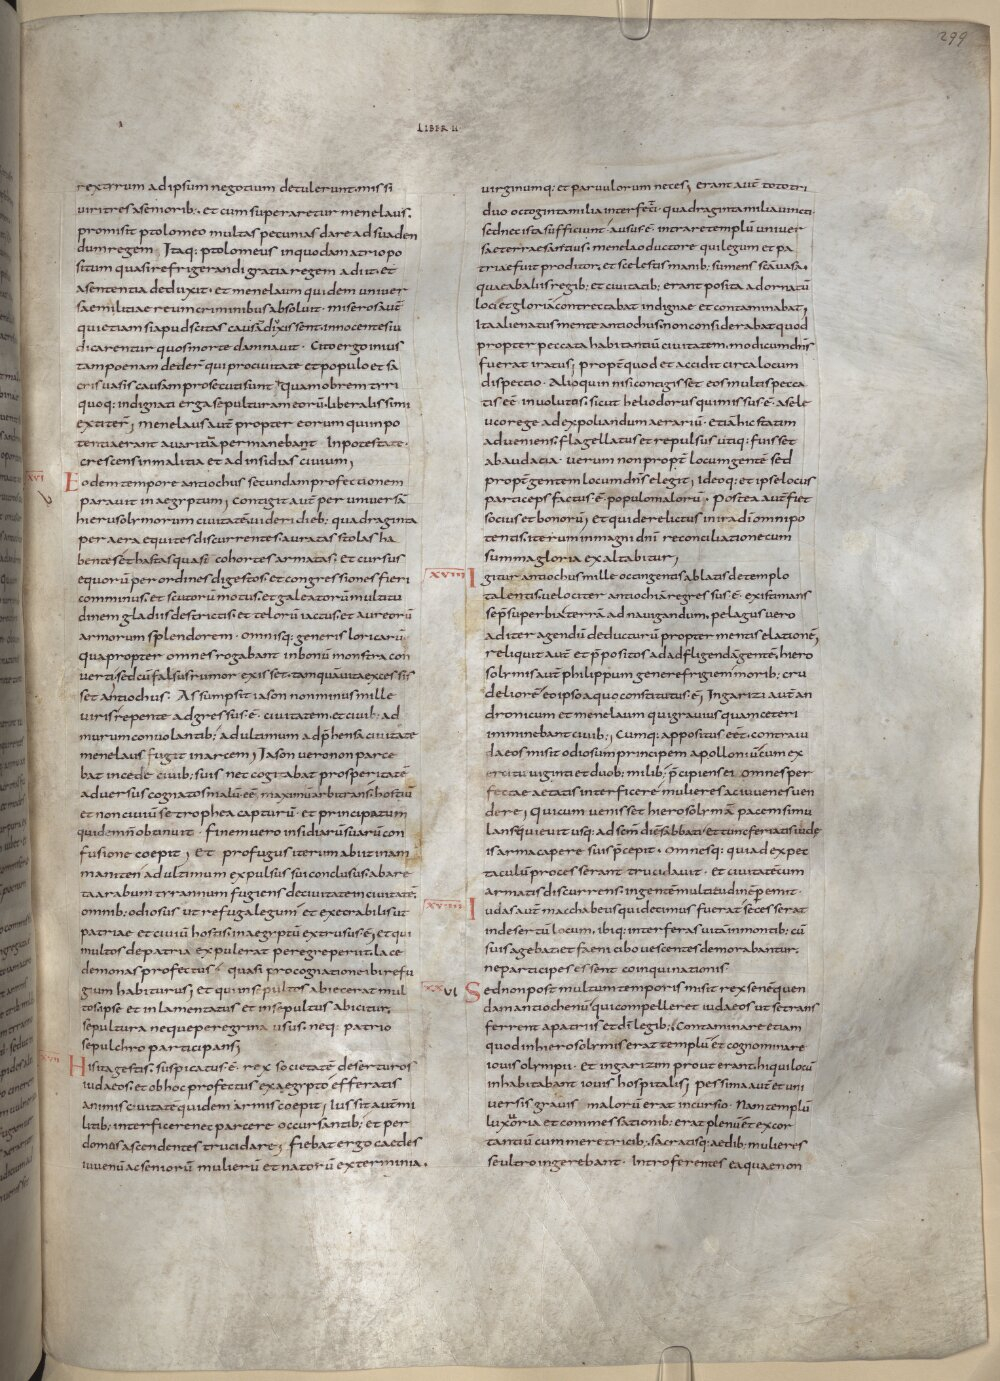 299
LIBER II
rex tyrum ad ipsum negotium detulerunt missi
viri tres a seniorib; et cum superaretur menelaus.
promisit ptolomeo multas pecunias dare ad suaden
dum regem Itaq; ptolomeus in quodam atrio po
situm quasi refrigerandi gratia regem adiit. et
a sententia deduxit. et menelaum quidem univer
sae militiae reum criminibus absolvit. miseros aut̄
qui etiam si apud scitas causā dixissent. innocentes iu
dicarentur quos morte damnavit. Cito ergo inius
tam poenam deder̄ qui pro civitate et populo et sa
cris vasis causam prosecuti sunt Quam obrem tyri
quoq; indignati erga sepulturam eorū. liberalissimi
extiter̄; menelaus aut̄ propter eorum qui in po
tentia erant avaritiā permanebant In potestate.
crescens in malitia et ad insidias civium;
XVI
Eodem tempore antiochus secundam profectionem
paravit in aegyptum; contigit aut̄ per universā
hierusolymorum civitatē videri dieb; quadraginta
per aera equites discurrentes. auratas stolas ha
bentes et hastas quasi cohortes armatas. et cursus
equorū per ordines digestos. et congressiones fieri
comminus. et scutorū motus. et galeatorū multitu
dinem gladiis destrictis. et telorū iactus. et aureorū
armorum splendorem. omnisq; generis loricarū
quapropter omnes rogabant in bonū monstra con
verti. sed cū falsus rumor exisset. tamquā vita excessis
set antiochus. Assumpsit iason non minus mille
viris repente adgressus ē. civitatem. et civib; ad
murum convolantib; ad ultimum adpraehensa civitate
menelaus fugit in arcem; Iason vero non parce
bat in cede civib; suis nec cogitabat prosperitatē
adversus cognatos malū eē maximū arbitrans. hostiū
et non civiū se trophea capturū. et principatum
quidem n̄ obtinuit. finem vero insidiarū suarū con
fusione coepit; Et profugus iterum abiit in am
maniten ad ultimum expulsus sui conclusus ab are
ta arabum tyrannum fugiens de civitate in civitatē.
omnib; odiosus ut refuga legum et execrabilis ut
patriae et civiū hostis. in aegyptū extrusus ē; et qui
multos de patria expulerat peregre periit. lace
demonas profectus quasi pro cognatione ibi refu
gium habiturus; et qui insepultos abiecerat mul
tos ipse et inlamentatus et insepultus abicitur.
sepultura neque peregrina usus. neq; patrio
sepulchro participans;
XVII
His ita gestis. suspicatus ē. rex societatē deserturos
iudaeos. et ob hoc profectus ex aegypto efferatis
animis civitatē quidem armis coepit; Iussit aut̄ mi
litib; interficere nec parcere occursantib; et per
domos ascendentes trucidare; Fiebat ergo caedes
iuvenū ac seniorū mulierū et natorū exterminia.
virginumq; et parvulorum neces; erant aut̄ toto tri
duo octoginta milia interfecti. quadraginta milia vincti.
sed nec ista sufficiunt ausus ē. intrare templū univer
sa terra sanctius. menelao ductore qui legum et pa
triae fuit proditor. et scelestis manib; sumens sc̄a vasa.
quae ab aliis regib; et civitatib; erant posita ad ornatū
loci et gloriā contrectabat indignae et contaminabat;
Ita alienatus mente antiochus non considerabat quod
propter peccata habitantiū civitatem. modicum dn̄s
fuerat iratus; propt̄ quod et accidit circa locum
dispectio. Alioquin nisi contigisset eos multis pecca
tis eē involutos. sicut heliodorus qui missus ē. a sele
uco rege ad expoliandum aerariū. etiā hic statim
adveniens. flagellatus et repulsus utiq; fuisset
ab audacia. verum non propt̄ locum gentē sed
propt̄ gentem locum dn̄s elegit; Ideoq; et ipse locus
particeps factus ē. populo malorū. Postea aut̄ fiet
socius et bonorū; et qui derelictus in ira dī omnipo
tentis. iterum in magni dn̄i reconciliatione cum
summa gloria exaltabitur;
XVIII
Igitur antiochus mille octingentis ablatis de templo
talentis. velociter antiochiā regressus ē. existimans
se p̄ superbia terrā ad navigandum. pelagus vero
ad iter agendū deducturū propter mentis elationē;
reliquit aut̄ et p̄positos ad adfligendā gentē. hiero
solymis aut̄ philippum genere frigiem morib; cru
deliorē eo ipso a quo constitutus ē; In garizi aut̄ an
dronicum et menelaum qui gravius quam ceteri
imminebant civib;; Cumq; appositus eēt. contra iu
daeos misit odiosum principem apollonium cum ex
ercitu viginti et duob; milib; p̄cipiens ei omnes per
feccae aetatis interficere. mulieres ac iuvenes ven
dere; Qui cum venisset hierosolymā pacem simu
lans quievit usq; ad sc̄m diē sabbati. et tunc feriatis iude
is arma capere suis p̄cepit. Omnesq; qui ad expec
taculū processerant trucidavit. et civitatē cum
armatis discurrens. ingentē multitudinē peremit.
XVIIII
Iudas aut̄ macchabeus qui decimus fuerat secesserat
in desertū locum. ibiq; inter feras vitā in montib; cū
suis agebat. et faeni cibo vescentes demorabantur.
ne participes essent coinquinationis.
XXVI
Sed non post multum temporis misit rex senē quen
dam antiochenū qui compelleret iudaeos ut se trans
ferrent a patriis et dī legib; Contaminare etiam
quod in hierosolymis erat templū et cognominare
iovis olympii. et in garizim prout erant hi qui locū
inhabitabant iovis hospitalis; pessima aut̄ et uni
versis gravis malorū erat incursio. Nam templū
luxoria et commessationib; erat plenū et excor
tantiū cum meretricib; sacratisq; aedib; mulieres
se ultro ingerebant. Introferentes ea quae non